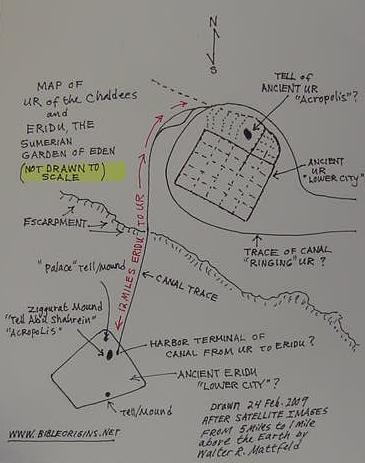 N
S
MAP OF
UR of the Chaldees
and
ERIDU, THE
SUMERIAN
GARDEN OF EDEN
(NOT DRAWN TO
SCALE)
TELL of
ANCIENT UR
"Acropolis"?
ANCIENT
UR
"LOWER CITY"
ESCARPMENT
TRACE OF CANAL
"RINGING" UR ?
12 MILES ERIDU TO UR
"Palace" Tell/mound
CANAL TRACE
Ziggurat Mound
"Tell Abu Shahrein"
"ACROPOLIS"
HARBOR TERMINAL OF
CANAL FROM UR TO ERIDU ?
ANCIENT ERIDU
"LOWER CITY" ?
Tell/Mound
Drawn 24 Feb. 2009
AFTER SATELLITE IMAGES
FROM 5 miles to 1 mile
above the Earth by
Walter R. Mattfeld
WWW.BIBLEORIGINS.NET